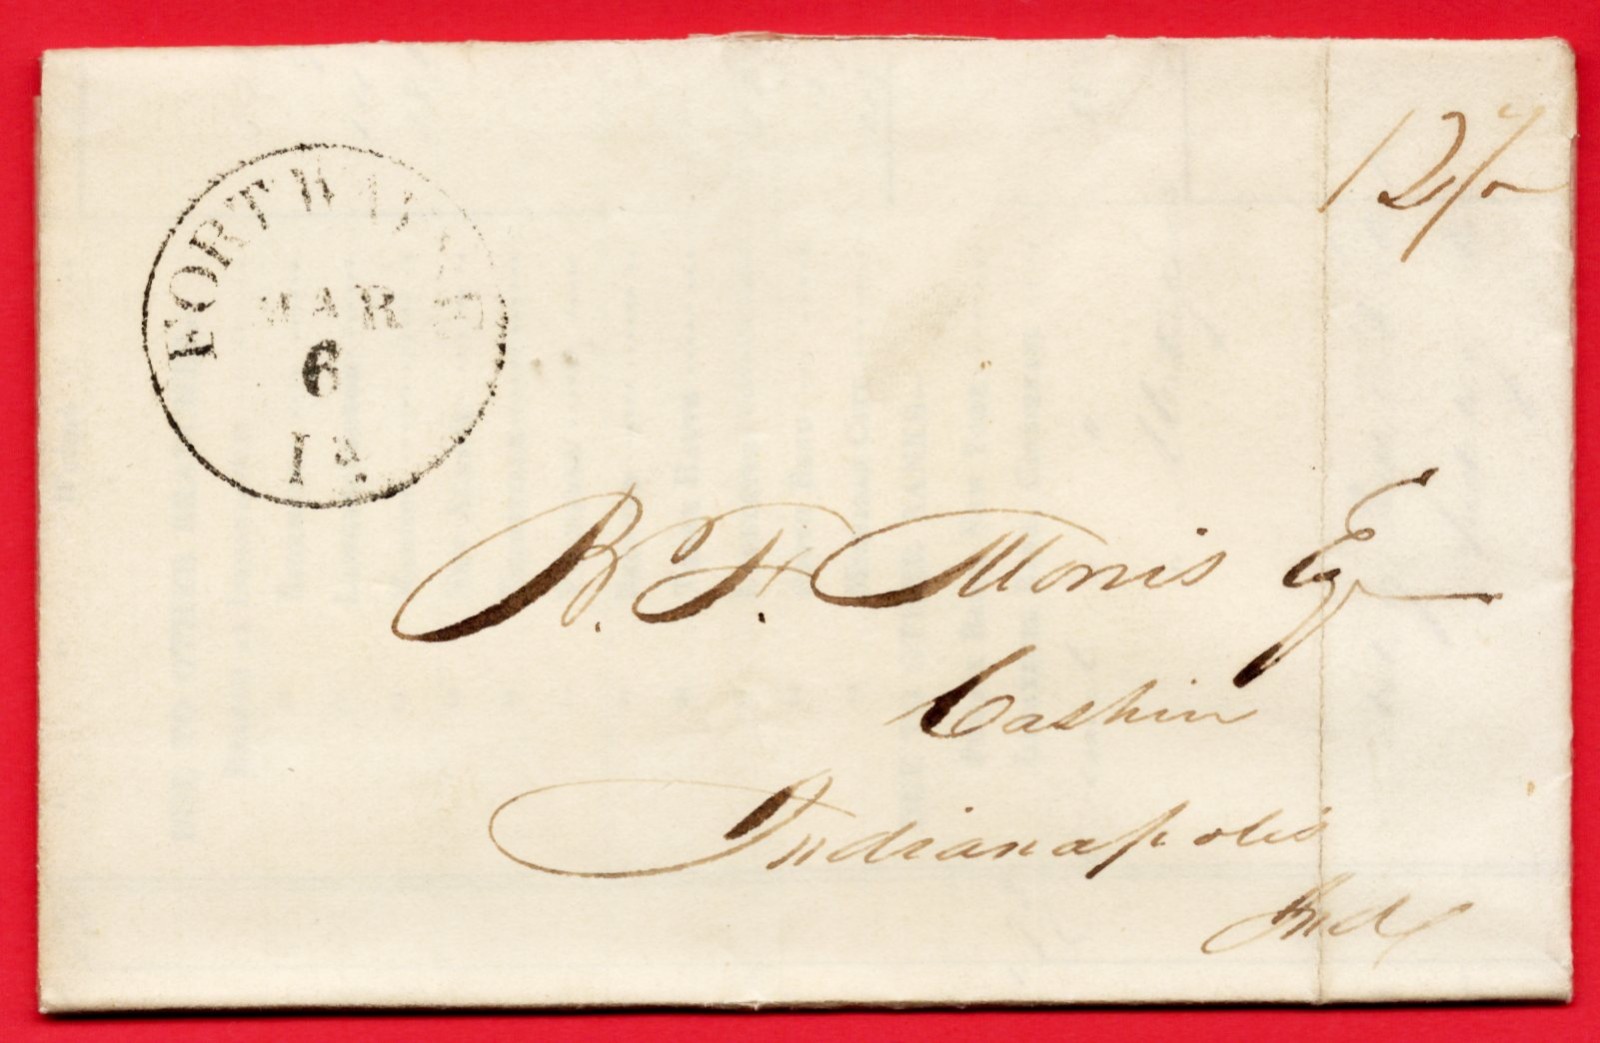 FORT WAYNE
MAR
6
Ia.
12 1/2
B. F. Morris Esqr
Cashier
Indianapolis
Ind